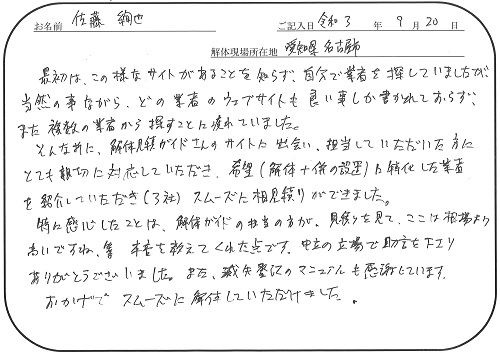 お名前 佐藤 絢也 ご記入日 令和3年9月20日
解体現場所在地 愛知県名古屋市
最初は、この様なサイトがあることを知らず、自分で業者を探していましたが
当然の事ながら、どの業者のウェブサイトも良い事しか書かれておらず、
また複数の業者から探すことに疲れていました。
そんな折に、解体見積ガイドさんのサイトに出会い、担当していただいた方に
とても親切に対応していただき、希望(解体+塀の設置)に特化した業者
を紹介していただき(3社)スムーズに相見積りができました。
特に感じたことは、解体ガイドの担当の方が、見積りを見て、ここは相場より
高いですね、等 本音を教えてくれた点です。中立の立場で助言を下さり
ありがとうございました。また、滅失登記のマニュアルも感謝しています。
おかげでスムーズに解体していただけました。